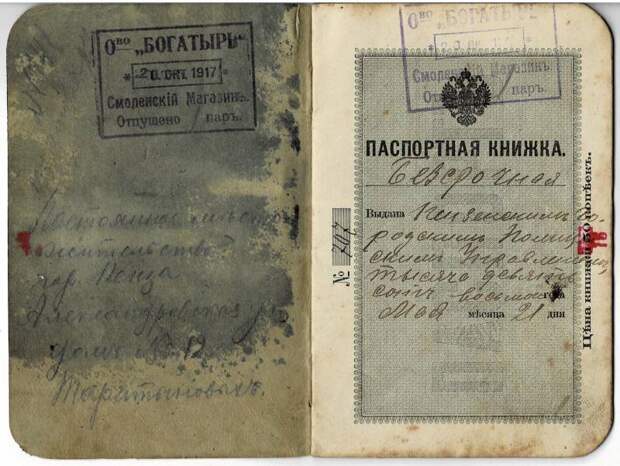 О-во „БОГАТЫРЬ"
* 20. ОКТ. 1917 *
Смоленскій Магазинъ
Отпущено 1 паръ.
Постоянное мѣсто
жительство
гор. Пенза
Александровская ул
домъ №
О-во „БОГАТЫРЬ"
Смоленскій Магазинъ
паръ.
ПАСПОРТНАЯ КНИЖКА.
Безсрочная
Выдана Пензенскимъ го-
родскимъ Полицей-
скимъ Управленіемъ
тысяча девять
сотъ восьмого
Мая мѣсяца 21 дня
№ 707
Цѣна книжки 50 копѣекъ.